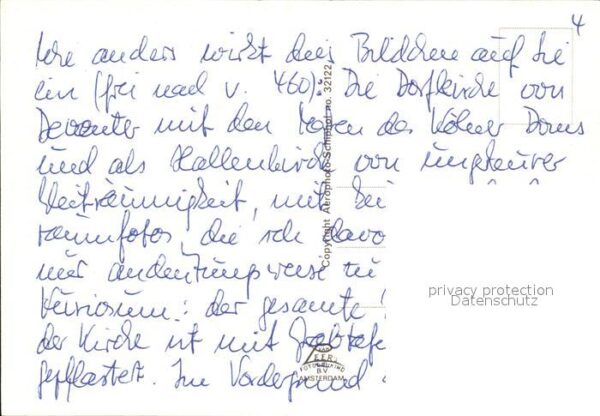 4
Wie anders wirkt dies Bildchen auf Sie
ein (frei nach V. 460): Die Dorfkirche von
Deventer mit den Maßen des Kölner Doms
und als Hallenkirche von ungeheurer
Weiträumigkeit, mit
raumfotos, die ich davo
nur andeutungsweise
Kuriosum: der gesamte
der Kirche ist mit Grabtafe
gepflastert. Im Vordergrund
Copyright Aerophoto-Schiphol no. 32122
privacy protection
Datenschutz
FOTODRUKIND
B.V.
AMSTERDAM